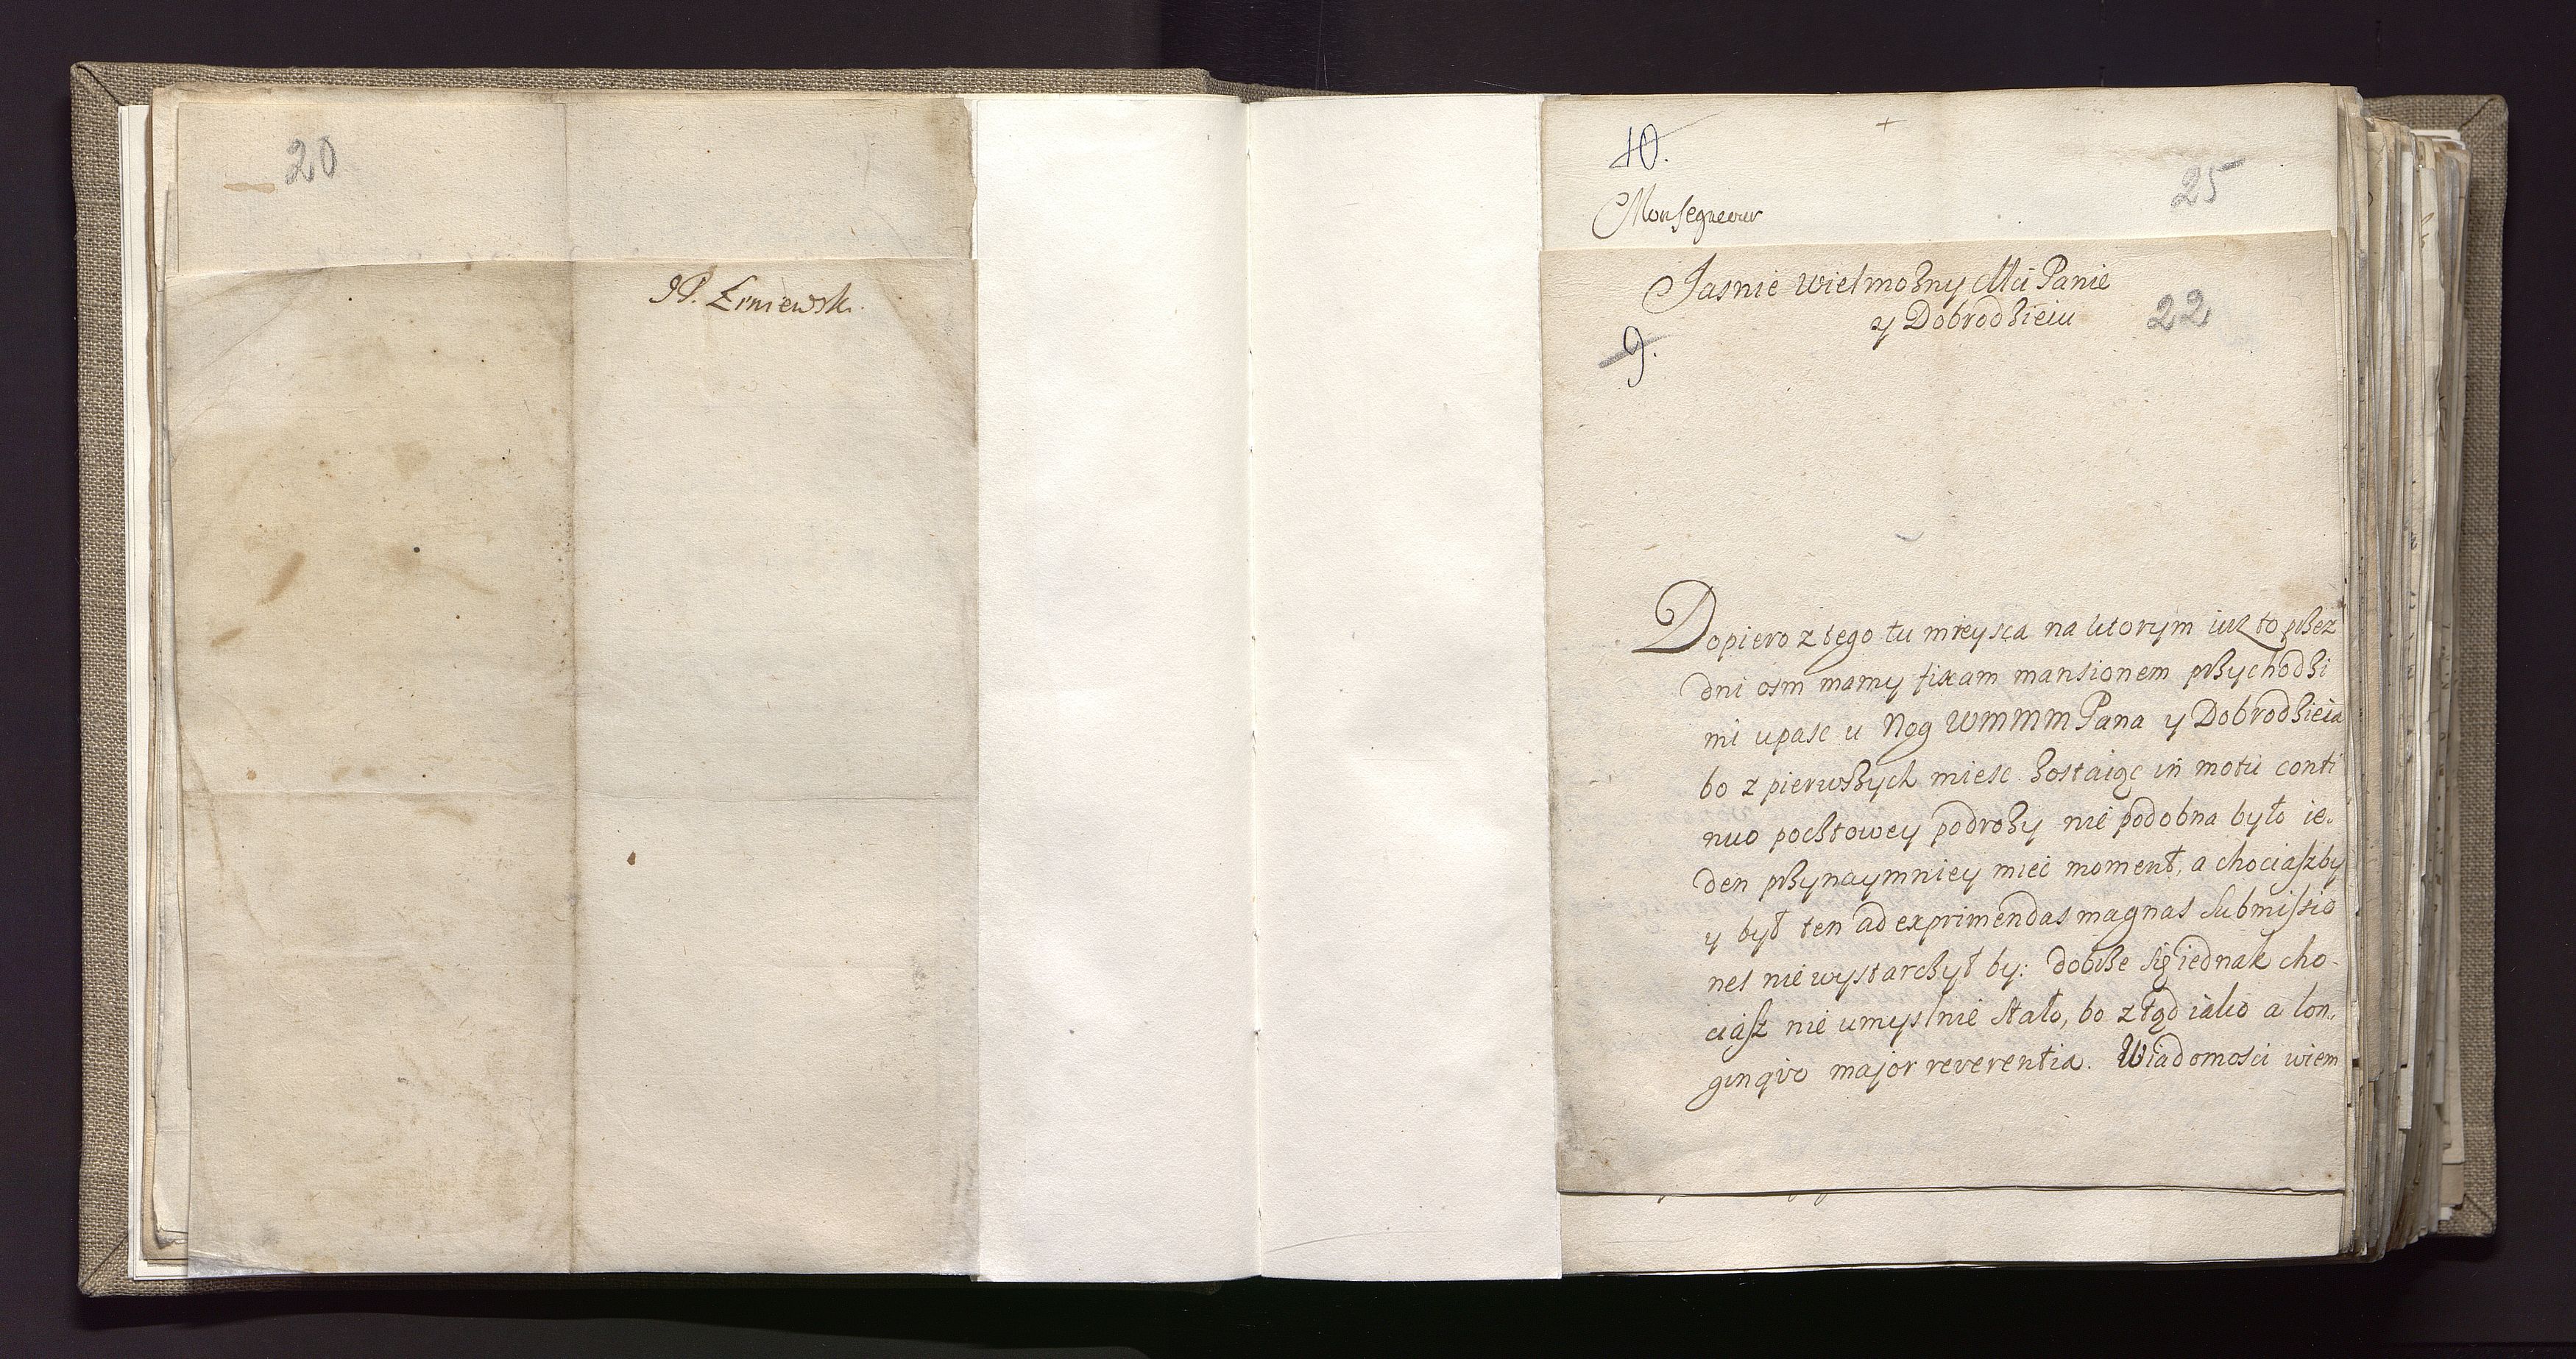 20
JP. Żrniewsk.
10.
+
25
Monsegneuur
Jasnie wielmożny Mci Panie
y Dobrodzieiu
22
9.
Dopiero z tego tu mieysca na ktorym iuz to przez
dni osm mamy fixam mansionem przychodzi
mi upasc u Nog WMMM Pana y Dobrodzieia
bo z pierwszych miesc zostaiąc in motu conti
nuo pocztowey podrozy nie podobna było ie.
den przynaymniey miec moment, a chociaszby
y był ten ad exprimendas magnas submissio
nes nie wystarczył by: dobrze się iednak cho-
ciasz nie umyslnie stało, bo z tąd iako a lon.
ginqvo major reverentia. Wiadomosci wiem